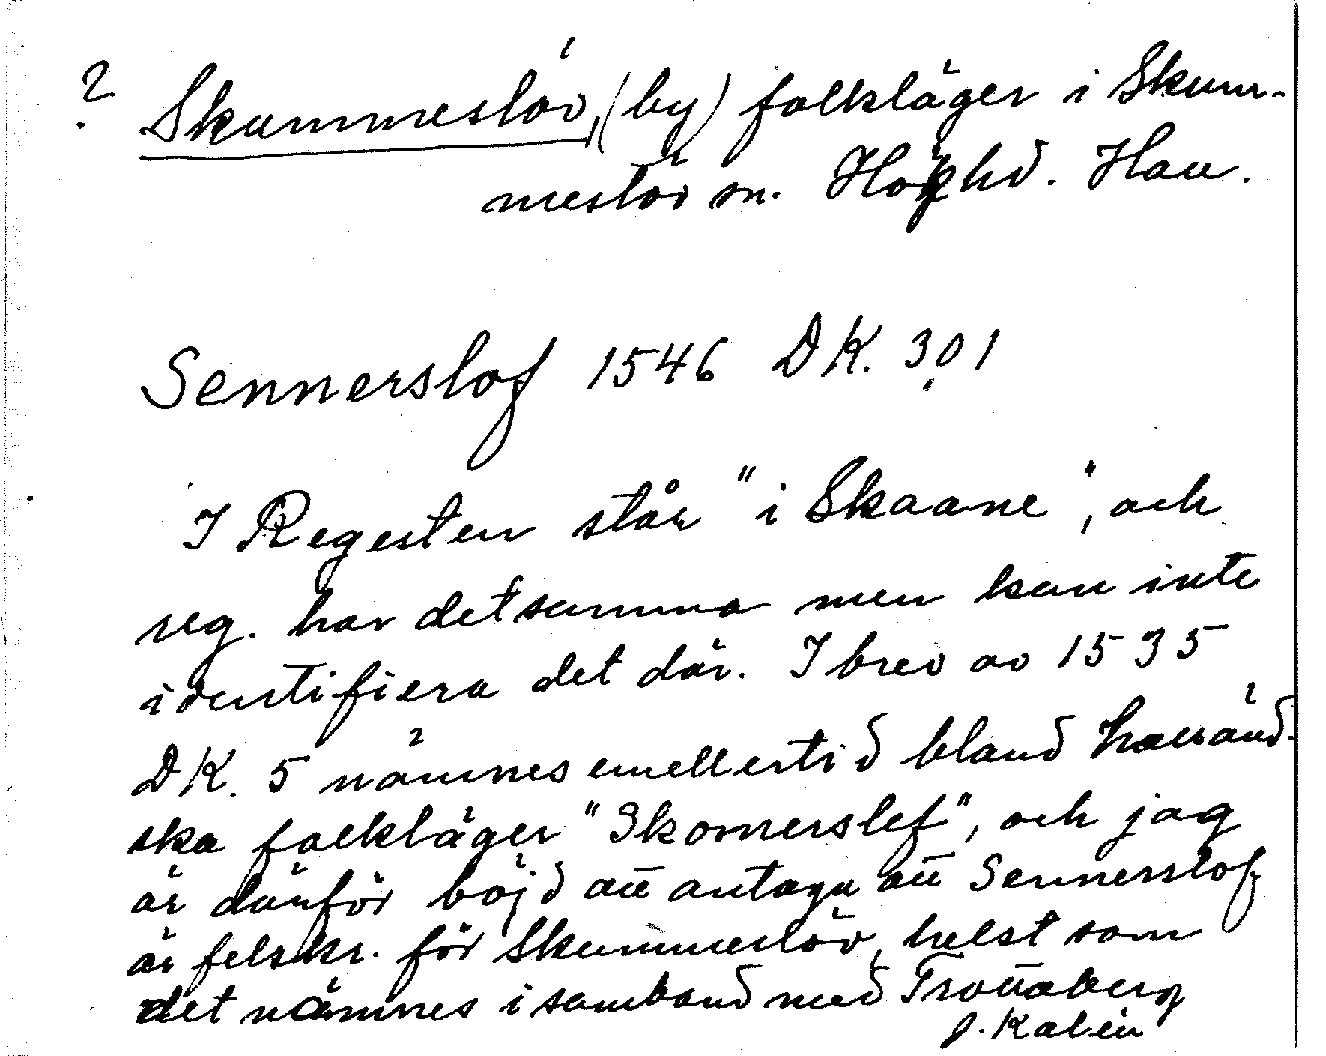 ? Skummeslöv, (by) folkläger i Skum-
meslöv sn. Hökhd. Hall.
Sennerslof 1546 DK. 301
I Regesten står "i Skaane", och
reg. har detsamma men kan inte
identifiera det där. I brev av 1535
DK. 5 nämnes emellertid bland halländ-
ska folkläger "Skomerslef", och jag
är därför böjd att antaga att Sennerslof
är felskr. för Skummeslöv, helst som
det nämnes i samband med Trottaberg
J. Kalén